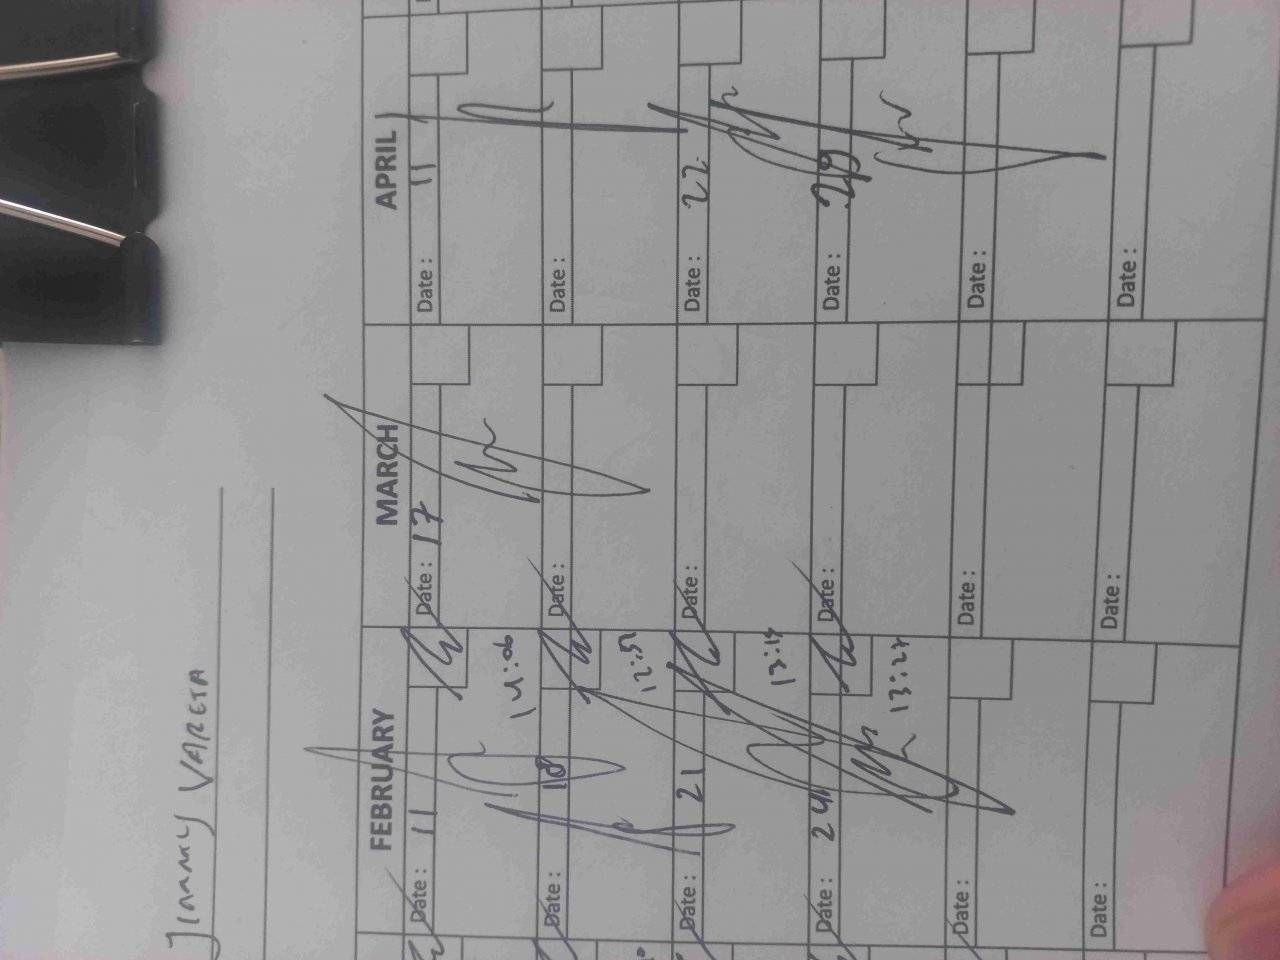 JIMMMY VARETA
FEBRUARY MARCH APRIL
Date : 11 Date : 17 Date : 11
14:06
Date : 18 Date : Date :
12:52
Date : 21 Date : Date : 22
13:14
Date : 24 Date : Date : 29
13:27
Date : Date : Date :
Date : Date : Date :